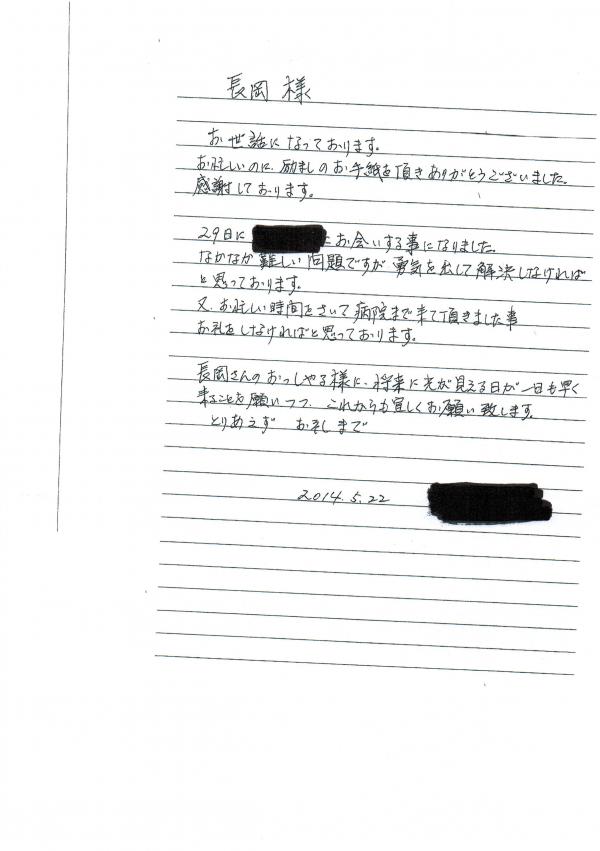 長岡 様
お世話になっております。
お忙しいのに、励ましのお手紙を頂きありがとうございました。
感謝しております。
29日に
にお会いする事になりました。
なかなか難しい問題ですが勇気を出して解決しなければ
と思っております。
又、お忙しい時間をさいて病院まで来て頂きました事
お礼をしなければと思っております。
長岡さんのおっしゃる様に、将来に光が見える日が一日も早く
来ることを願いつつ、これからも宜しくお願い致します。
とりあえず お礼まで
2014.5.22